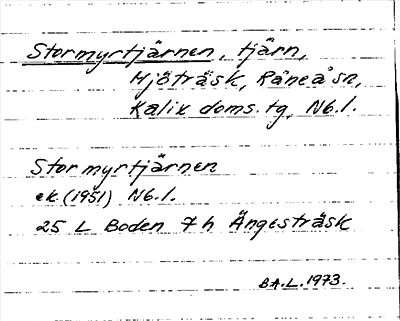 Stormyrtjärnen, tjärn,
Hjöträsk, Råneå sn,
Kalix doms. tg, Nb.l.
Stormyrtjärnen
ek. (1951) Nb.l.
25 L Boden 7 h Ängesträsk
B.A.L. 1973.